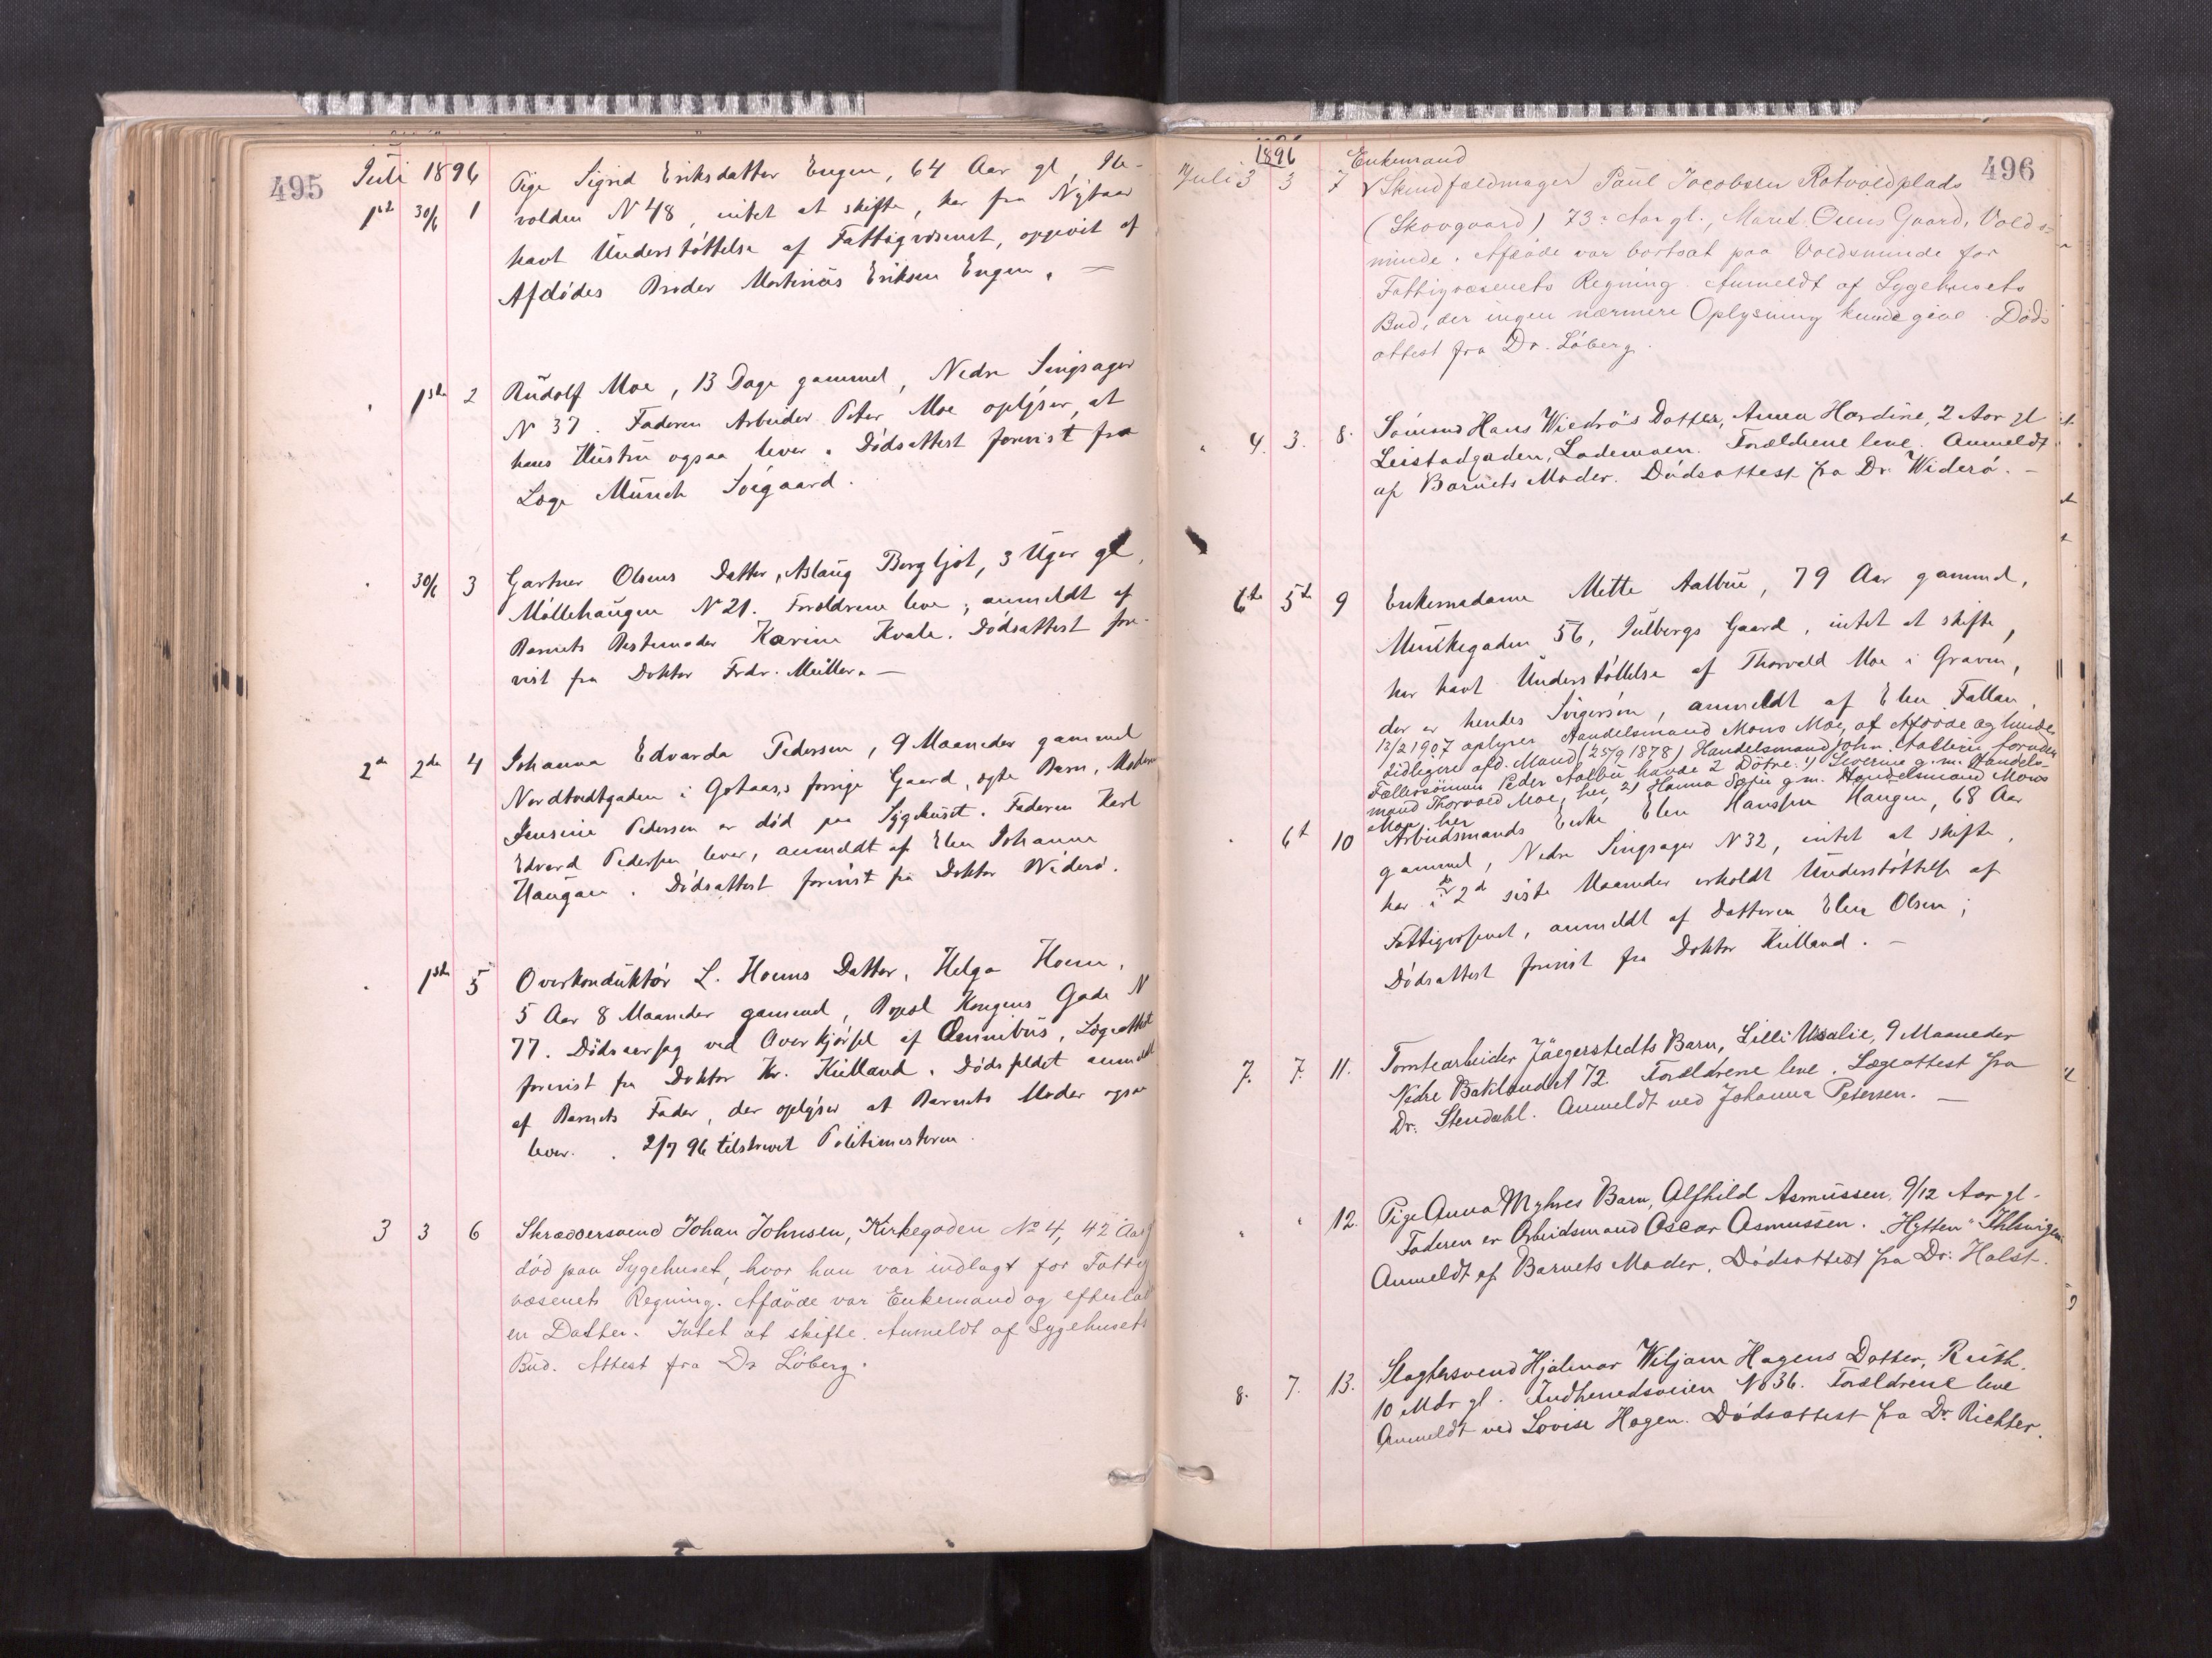 495
Juli 1896
1ste 30/6 1 Pige Sigrid Eriksdatter Engen, 64 Aar gl, Ile-
volden N 48, intet at skifte, har fra Nytaar
havt Understøttelse af Fattigvæsenet, opgivet af
Afdødes Broder Martinus Eriksen Engen. —
1ste 2 Rudolf Moe, 13 Dage gammel, Nedre Singsager
N 37. Faderen Arbeider Peter Moe oplyser, at
hans Hustru ogsaa lever. Dødsattest forevist fra
Læge Munch Søegaard.
30/6 3 Gartner Olsens Datter, Aslaug Bergljot, 3 Uger gl,
Møllehaugen N 21. Forældrene leve, anmeldt af
Barnets Bestemoder Karine Kvale. Dødsattest fore-
vist fra Doktor Frdr. Müller. —
2de 2de 4 Johanna Edvarda Pedersen, 9 Maaneder gammel
Nordtvedtgaden i Getaas's forrige Gaard, ægte Barn, Moderen
Jensine Pedersen er død paa Sygehuset. Faderen Karl
Edvard Pedersen lever, anmeldt af Elen Johanna
Haugan. Dødsattest forevist fra Doktor Widerø.
1ste 5 Overkonduktør L. Hoems Datter, Helga Hoem,
5 Aar 8 Maaneder gammel, Kongens Gade N
77. Dødsaarsag ved Overkjørsel af Omnibus, Lægeattest
forevist fra Doktor Kr. Kielland. Dødsfaldet anmeldt
af Barnets Fader, der oplyser at Barnets Moder ogsaa
lever. 2/7 96 tilskrevet Politimesteren.
3 3 6 Skræddersvend Johan Johnsen, Kirkegaden No 4, 42 Aar g
død paa Sygehuset, hvor han var indlagt for Fattig
væsenets Regning. Afdøde var Enkemand og efterlod
en Datter. Intet at skifte. Anmeldt af Sygehusets
Bud. Attest fra Dr Løberg.
496
1896
Enkemand
Juli 3 3 7 Skindfældmager Paul Jacobsen Rotvoldplads
(Skovgaard) 73 Aar gl., Marit Oeens Gaard, Volds-
minde. Afdøde var bortsat paa Voldsminde for
Fattigvæsenets Regning. Anmeldt af Sygehusets
Bud, der ingen nærmere Oplysning kunde give. Døds
attest fra Dr. Løberg.
4. 3. 8. Sømand Hans Wiedrø's Datter, Anna Hardine, 2 Aar gl
Leistadgaden, Lademoen. Forældrene leve. Anmeldt
af Barnets Moder. Dødsattest fra Dr. Widerø. —
6te 5te 9 Enkemadame Mette Aalbu, 79 Aar gammel,
Munkegaden 56, Julbergs Gaard, intet at skifte,
har havt Understøttelse af Thorvald Moe i Graven,
der er hendes Svigersøn, anmeldt af Elen Fallan
12/2 1907 oplyser Handelsmand Mons Moe, at Afdøde og hendes
tidligere afd. Mand (25/9 1878) Handelsmand John Aalbu, foruden
Fællessønnen Peder Aalbu havde 2 Døtre: 1) Severine g.m. Handels-
mand Thorvald Moe, her, 2) Hanna Sofie g.m. Handelsmand Mons
Moe, her
6t 10 Arbeidsmands Enke Elen Hansen Haugen, 68 Aar
gammel, Nedre Singsager N 32, intet at skifte,
har i de 2de siste Maaneder erholdt Understøttelse af
Fattigvæsenet, anmeldt af Datteren Elen Olsen;
Dødsattest forevist fra Doktor Kielland. —
7. 7. 11. Tomtearbeider Jäegerstedts Barn, Lilli Usalie, 9 Maaneder
Nedre Baklandet 72. Forældrene leve. Lægeattest fra
Dr. Stendahl. Anmeldt ved Johanna Petersen. —
12. Pige Anna Myhres Barn, Alfhild Asmussen, 9/12 Aar gl.
Faderen er Arbeidsmand Oscar Asmussen. "Hytten" Ihlsvigen
Anmeldt af Barnets Moder. Dødsattest fra Dr. Holst.
8. 7. 13. Slagtersvend Hjalmar Wiljam Hagens Datter, Ruth.
10 Mdr gl. Indherredsveien No 36. Forældrene leve
Anmeldt ved Lovise Hagen. Dødsattest fra Dr. Richter.